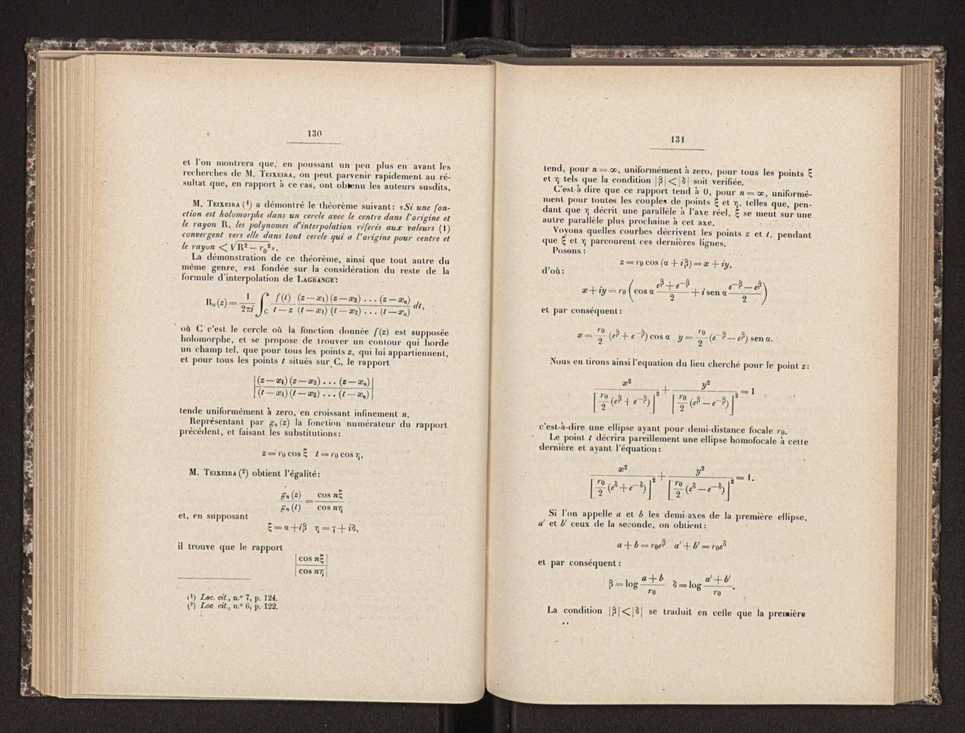 130
et l'on montrera que, en poussant un peu plus en avant les
recherches de M. TEIXEIRA, on peut parvenir rapidement au ré-
sultat que, en rapport à ce cas, ont obtenu les auteurs susdits.
M. TEIXEIRA (¹) a démontré le théorème suivant: «Si une fon-
ction est holomorphe dans un cercle avec le centre dans l'origine et
le rayon R, les polynomes d'interpolation référés aux valeurs (1)
convergent vers elle dans tout cercle qui a l'origine pour centre et
le rayon < √R² — r₀²».
La démonstration de ce théorème, ainsi que tout autre du
même genre, est fondée sur la considération du reste de la
formule d'interpolation de LAGRANGE:
Rₙ(z) = 1/2πi ∫_C f(t)/(t — z) (z — x₁)(z — x₂) . . . (z — xₙ)/(t — x₁)(t — x₂) . . . (t — xₙ) dt,
où C c'est le cercle où la fonction donnée f(z) est supposée
holomorphe, et se propose de trouver un contour qui borde
un champ tel, que pour tous les points z, qui lui appartiennent,
et pour tous les points t situés sur C, le rapport
|(z — x₁)(z — x₂) . . . (z — xₙ)/(t — x₁)(t — x₂) . . . (t — xₙ)|
tende uniformément à zero, en croissant infinement n.
Représentant par gₙ(z) la fonction numérateur du rapport
précédent, et faisant les substitutions:
z = r₀ cos ξ t = r₀ cos η,
M. TEIXEIRA (²) obtient l'égalité:
gₙ(z)/gₙ(t) = cos nξ/cos nη
et, en supposant
ξ = α + iβ η = γ + iδ,
il trouve que le rapport
|cos nξ/cos nη|
(¹) Loc. cit., n.º 7, p. 124.
(²) Loc cit., n.º 6, p. 122.
131
tend, pour n = ∞, uniformément à zero, pour tous les points ξ
et η tels que la condition |β| < |δ| soit verifiée.
C'est à dire que ce rapport tend à 0, pour n = ∞, uniformé-
ment pour toutes les couples de points ξ et η, telles que, pen-
dant que η décrit une parallèle à l'axe réel, ξ se meut sur une
autre parallèle plus prochaine à cet axe.
Voyons quelles courbes décrivent les points z et t, pendant
que ξ et η parcourent ces dernières lignes.
Posons:
z = r₀ cos (α + iβ) = x + iy,
d'où:
x + iy = r₀ (cos α (e^β + e^-β)/2 + i sen α (e^-β — e^β)/2)
et par conséquent:
x = r₀/2 (e^β + e^-β) cos α y = r₀/2 (e^-β — e^β) sen α.
Nous en tirons ainsi l'equation du lieu cherché pour le point z:
x²/[r₀/2 (e^β + e^-β)]² + y²/[r₀/2 (e^β — e^-β)]² = 1
c'est-à-dire une ellipse ayant pour demi-distance focale r₀.
Le point t décrira pareillement une ellipse homofocale à cette
dernière et ayant l'équation:
x²/[r₀/2 (e^δ + e^-δ)]² + y²/[r₀/2 (e^δ — e^-δ)]² = 1.
Si l'on appelle a et b les demi-axes de la première ellipse,
a' et b' ceux de la seconde, on obtient:
a + b = r₀e^β a' + b' = r₀e^δ
et par conséquent:
β = log (a + b)/r₀ δ = log (a' + b')/r₀.
La condition |β| < |δ| se traduit en celle que la première